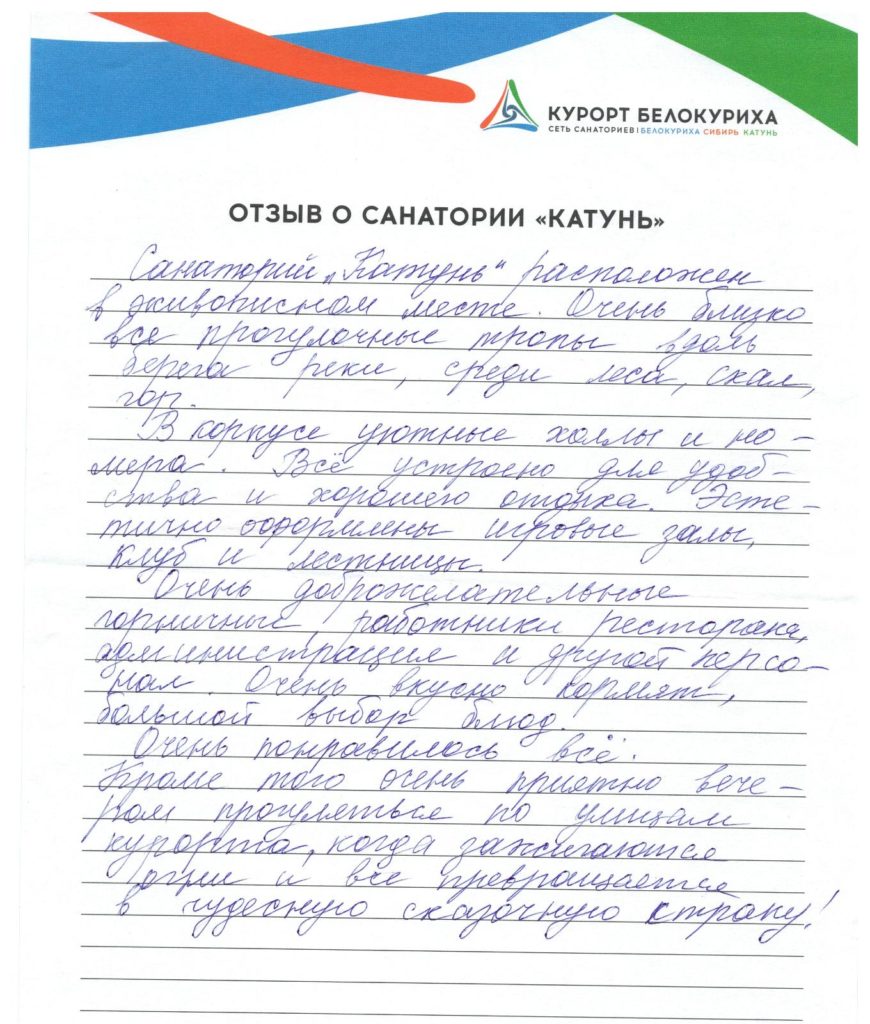 КУРОРТ БЕЛОКУРИХА
СЕТЬ САНАТОРИЕВ | БЕЛОКУРИХА СИБИРЬ КАТУНЬ
ОТЗЫВ О САНАТОРИИ «КАТУНЬ»
Санаторий „Катунь" расположен
в живописном месте. Очень близко
все прогулочные тропы вдоль
берега реки, среди леса, скал,
гор.
В корпусе уютные холлы и но-
мера. Всё устроено для удоб-
ства и хорошего отдыха. Эсте-
тично оформлены игровые залы,
клуб и лестницы.
Очень доброжелательные
горничные, работники ресторана,
администрация и другой персо-
нал. Очень вкусно кормят,
большой выбор блюд.
Очень понравилось всё.
Кроме того очень приятно вече-
ром прогуляться по улицам
курорта, когда зажигаются
огни и все превращается
в чудесную сказочную страну!